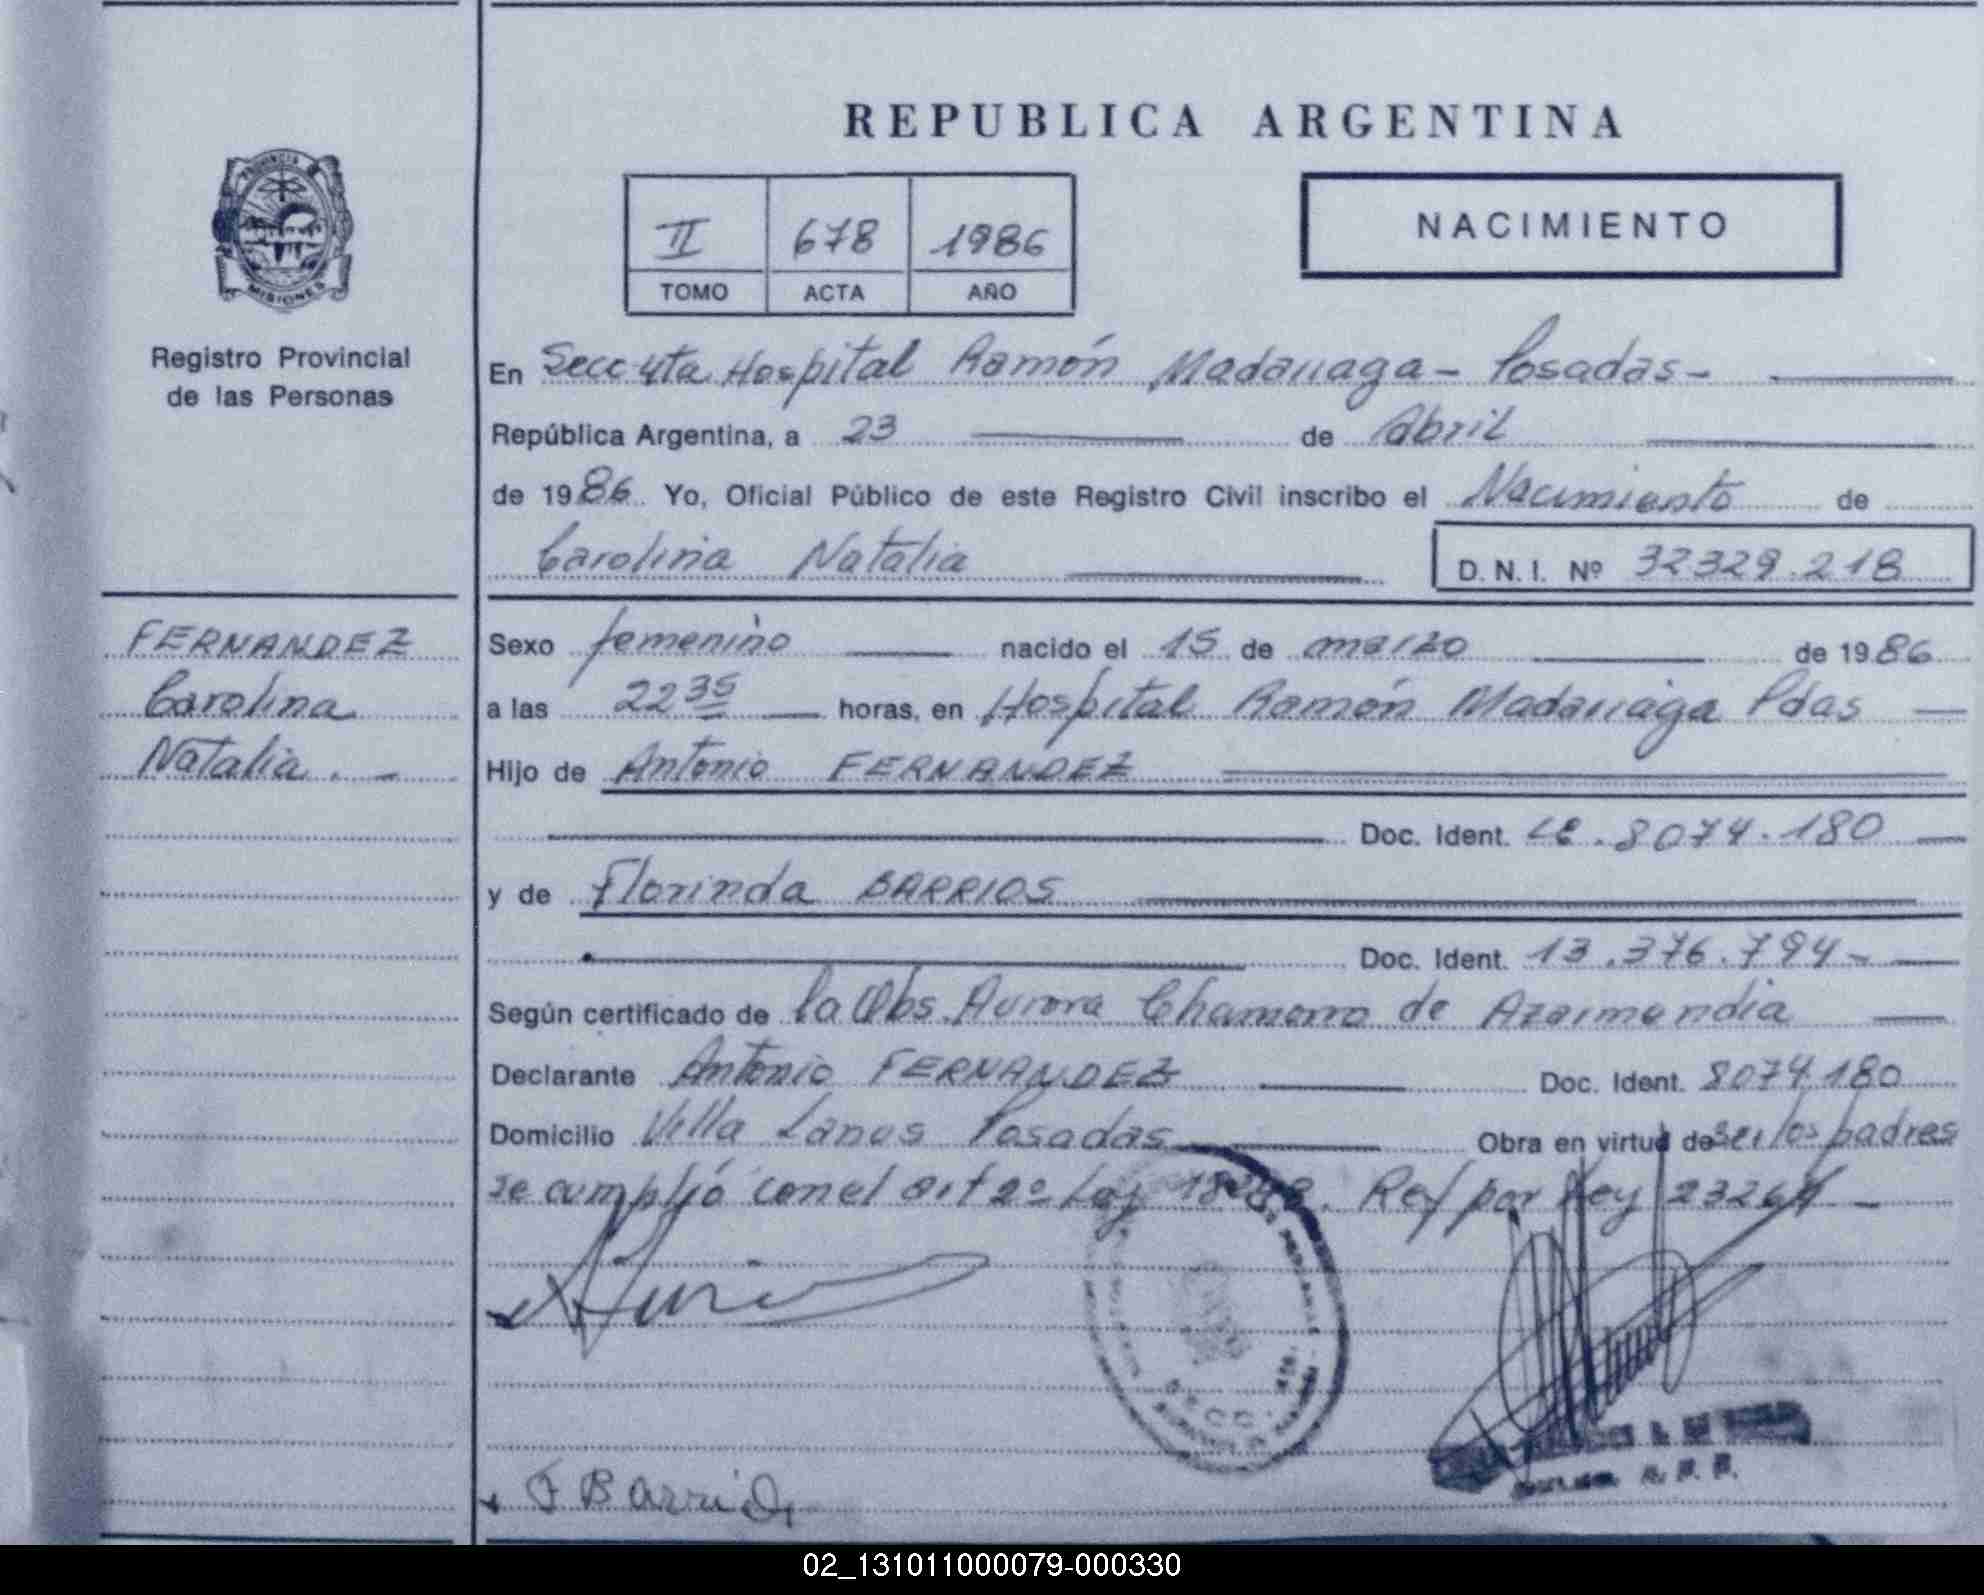 REPUBLICA ARGENTINA
PROVINCIA
MISIONES
Registro Provincial
de las Personas
II 678 1986
TOMO ACTA AÑO
NACIMIENTO
En Secc 4ta Hospital Ramón Madariaga - Posadas -
República Argentina, a 23 de Abril
de 1986 Yo, Oficial Público de este Registro Civil inscribo el Nacimiento de
Carolina Natalia
D. N. I. Nº 32329.218
FERNANDEZ
Carolina
Natalia . -
Sexo femenino nacido el 15 de marzo de 1986
a las 22 35 horas, en Hospital Ramón Madariaga Pdas
Hijo de Antonio FERNANDEZ
Doc. Ident. LE. 8074.180
y de Florinda BARRIOS
Doc. Ident. 13.376.794-
Según certificado de la Obs. Aurora Chamorro de Azarmendia
Declarante Antonio FERNANDEZ Doc. Ident. 8074.180
Domicilio Villa Lanus Posadas Obra en virtud de ser los padres
se cumplió con el art 2º Ley 18248. Ref por Ley 23264
SECC.
F Barrios
02_131011000079-000330